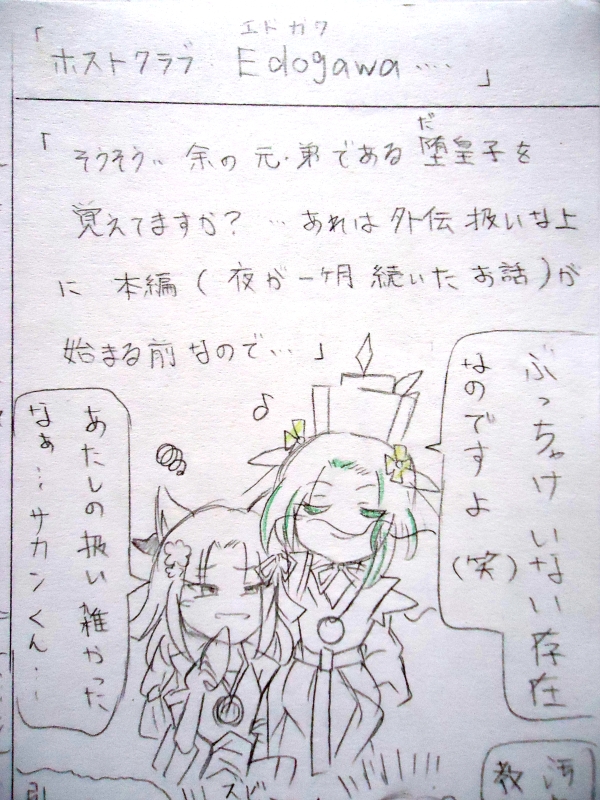 「ホストクラブ Edogawa‥‥」
エドガワ
「そうそう‥余の元・弟である堕皇子を
だ
覚えてますか？…あれは外伝扱いな上
に 本編(夜が一ヶ月続いたお話)が
始まる前なので…」
ぶっちゃけ いない存在
なのですよ
(笑)
♪
あたしの扱い雑やった
なぁ…サカンくん…
スビ
汚
教
引